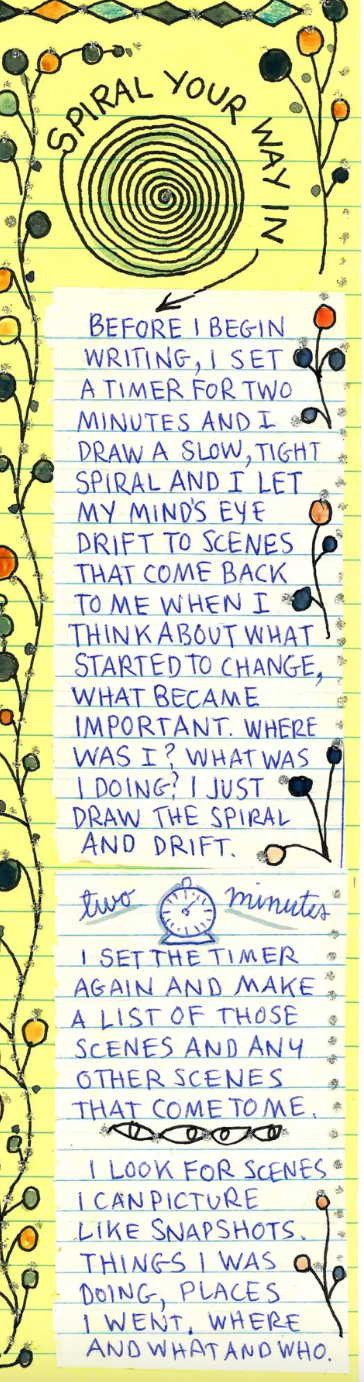 SPIRAL YOUR WAY IN
BEFORE I BEGIN
WRITING, I SET
A TIMER FOR TWO
MINUTES AND I
DRAW A SLOW, TIGHT
SPIRAL AND I LET
MY MIND'S EYE
DRIFT TO SCENES
THAT COME BACK
TO ME WHEN I
THINK ABOUT WHAT
STARTED TO CHANGE,
WHAT BECAME
IMPORTANT. WHERE
WAS I? WHAT WAS
I DOING? I JUST
DRAW THE SPIRAL
AND DRIFT.
two minutes
I SET THE TIMER
AGAIN AND MAKE
A LIST OF THOSE
SCENES AND ANY
OTHER SCENES
THAT COME TO ME.
I LOOK FOR SCENES
I CAN PICTURE
LIKE SNAPSHOTS.
THINGS I WAS
DOING, PLACES
I WENT, WHERE
AND WHAT AND WHO.